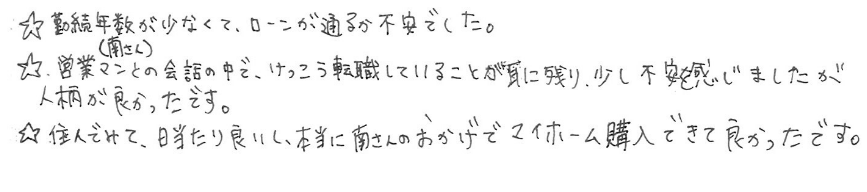 ☆ 勤続年数が少なくて、ローンが通るか不安でした。
(南さん)
☆. 営業マンとの会話の中で、けっこう転職していることが耳に残り、少し不安を感じましたが
人柄が良かったです。
☆ 住んでみて、日当たり良いし、本当に南さんのおかげでマイホーム購入できて良かったです。